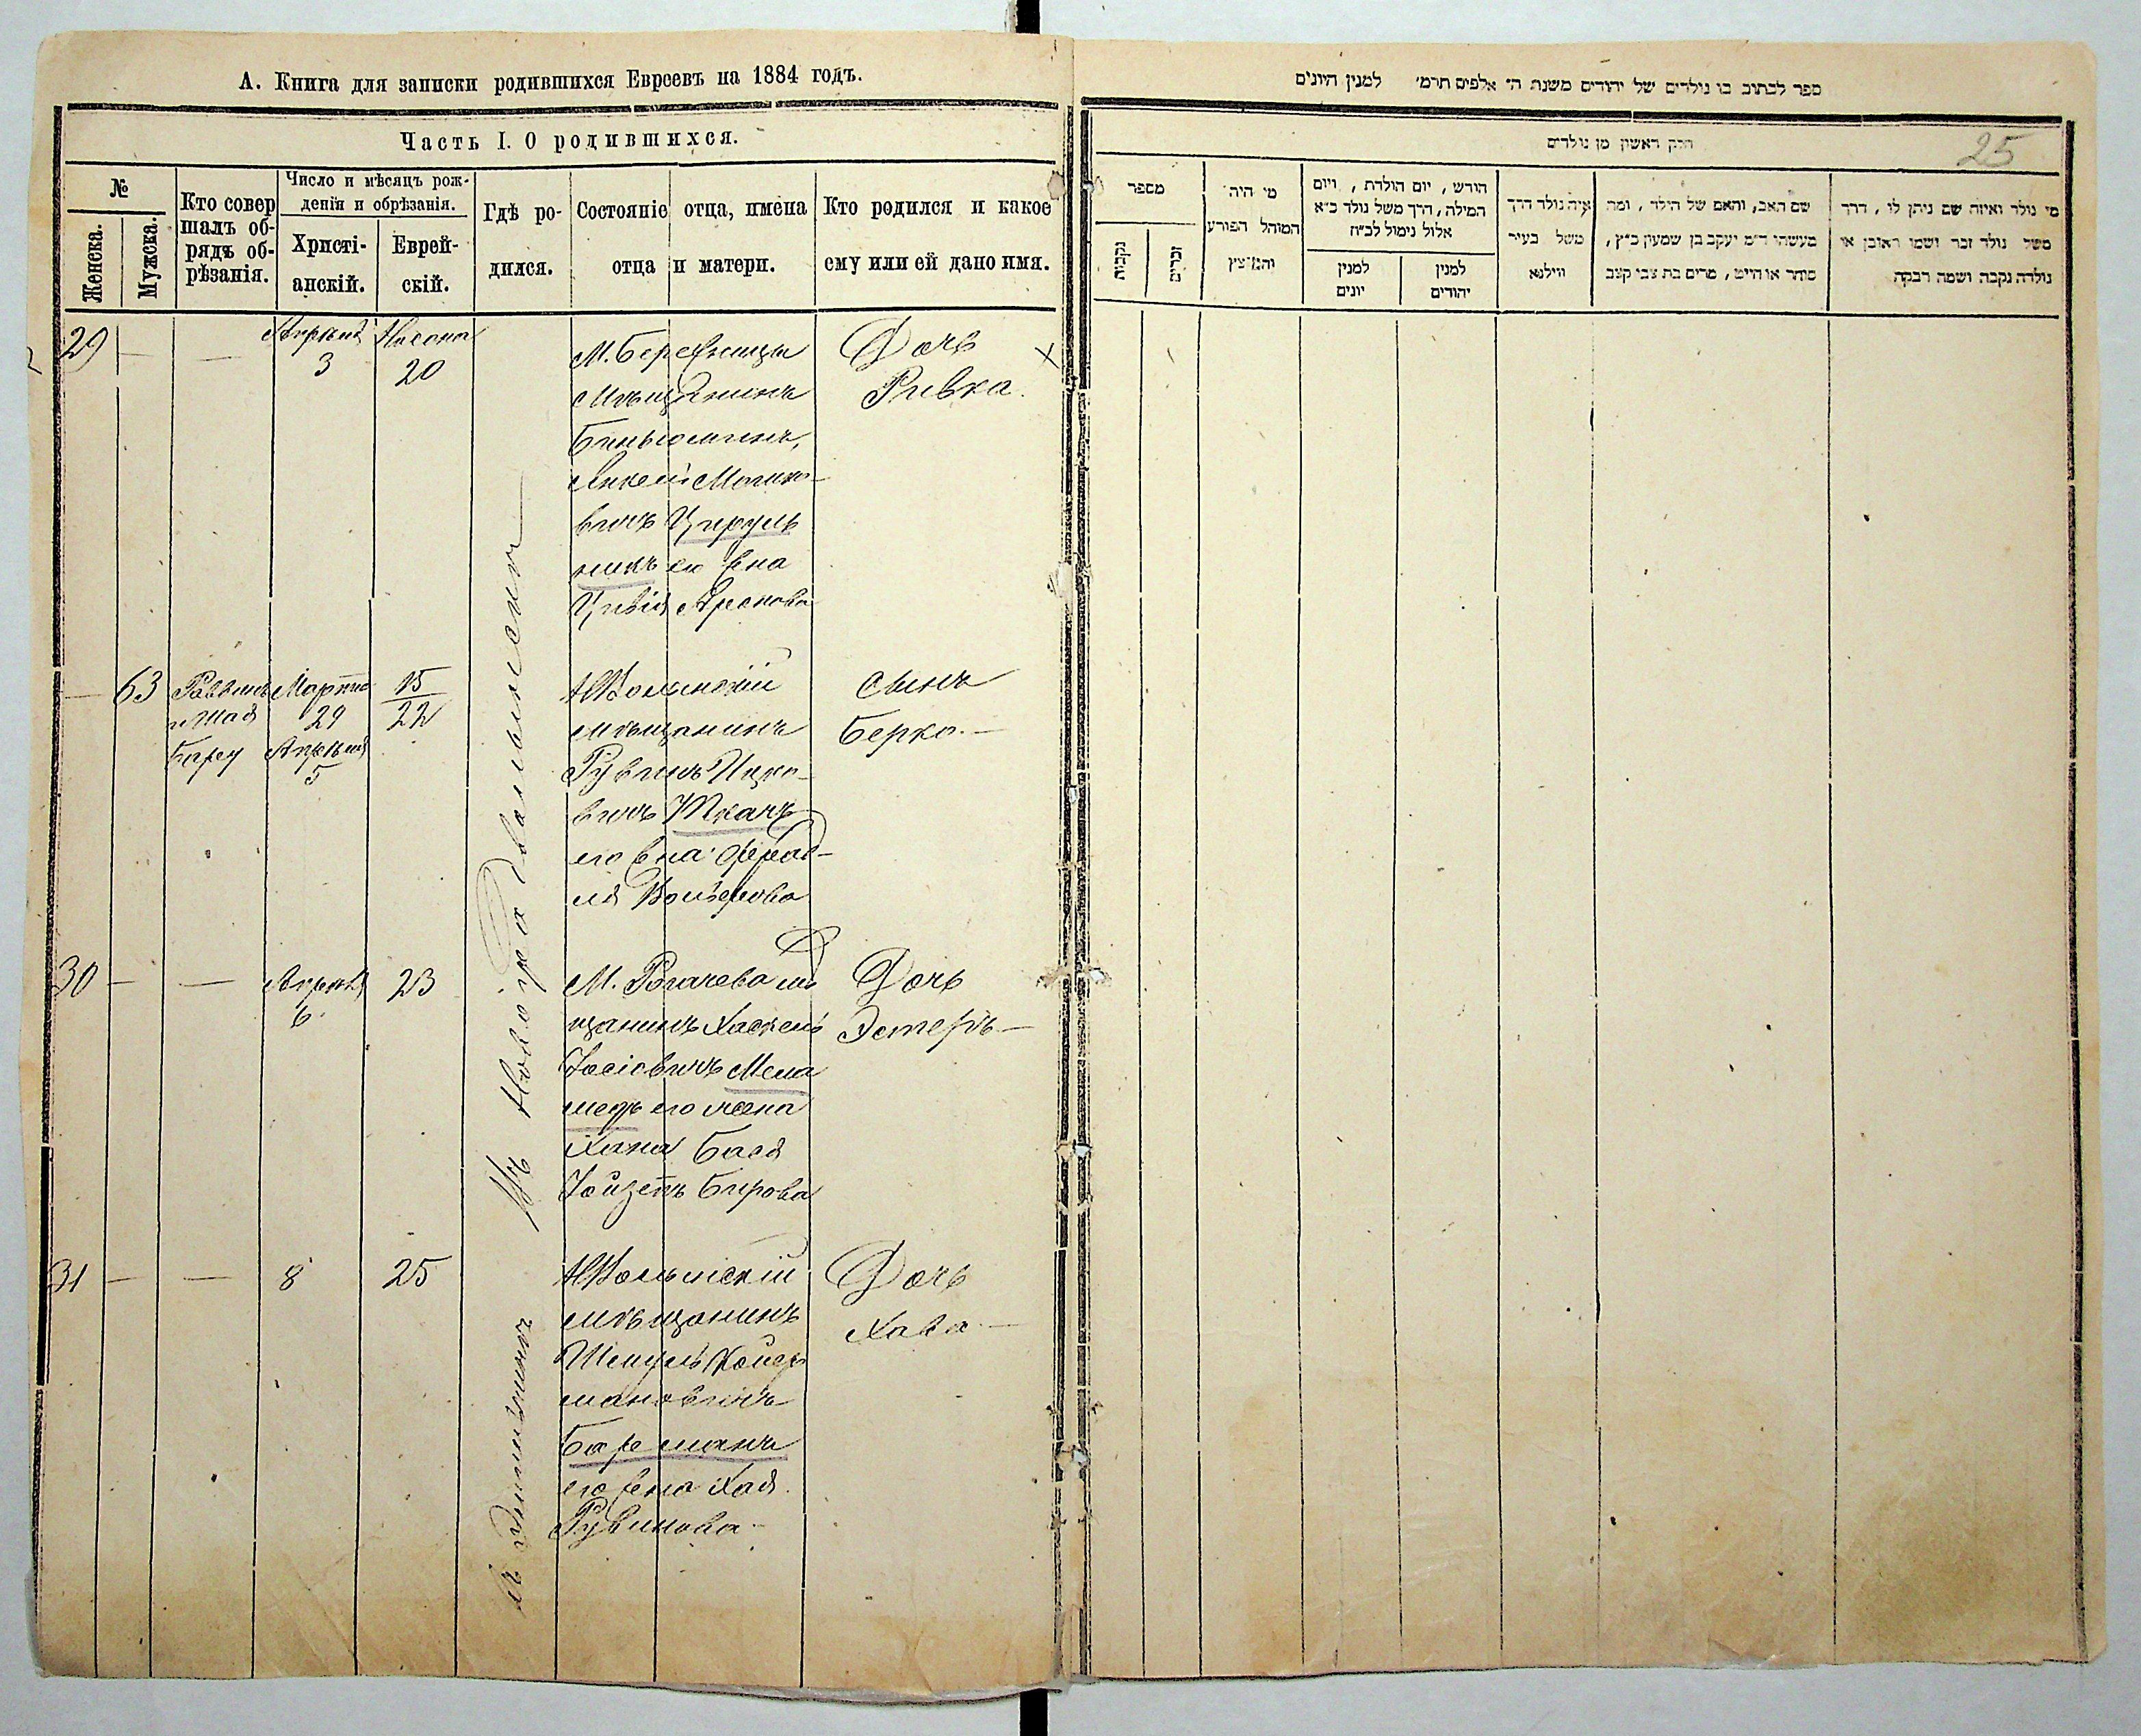 А. Книга для записки родившихся Евреевъ на 1884 годъ.
Часть I. О родившихся.
№
Женска.
Мужска.
Кто совер
шалъ об-
рядъ об-
рѣзанія.
Число и мѣсяцъ рож-
денія и обрѣзанія.
Христі-
анскій.
Еврей-
скій.
Гдѣ ро-
дился.
Состояніе отца, имена
отца и матери.
Кто родился и какое
ему или ей дано имя.
29 — —
Апрѣля
3
Нисона
20
М. Березницы
мѣщанинъ
Биньюминъ,
Янкель Мошко-
вичъ Цируль
никъ его жена
Цивія Аронова
Дочь
Ривка.
— 63
Раввинъ
Марта
29
Апрѣля
5
15
22
НВолынскій
мѣщанинъ
Рувинъ Ицко-
вичъ Ткачъ
его жна
сынъ
Берко. —
30 — —
Апрѣля
6
23
М. Рогачева мѣ
щанинъ Хаскель
Іосіовичъ Мела
медъ его жена
Хана Бася
Дочь
Эстеръ —
31 — —
8
25
НВолынскій
мѣщанинъ
Шмуль
мановичъ
его жена Хая
Рувинова —
Дочь
Хава —
Въ Новоградволынскѣ
ספר לכתוב בו נולדים של יהודים משנת ה' אלפים תרמ' למנין היונים
חלק ראשון מן נולדים
25
מספר
נקבות
זכרים
מי היה
המוהל הפורע
והמוצץ
חודש, יום הולדת, ויום
המילה, דרך משל נולד כ"א
אלול נימול לכ"ח
למנין
יונים
למנין
יהודים
איה נולד דרך
משל בעיר
ווילנא
שם האב, והאם של הילד, ומה
מעשהו ד"מ יעקב בן שמעון כ"ץ,
סוחר או חייט, מרים בת צבי קצב
מי נולד ואיזה שם ניתן לו, דרך
משל נולד זכר ושמו ראובן או
נולדה נקבה ושמה רבקה